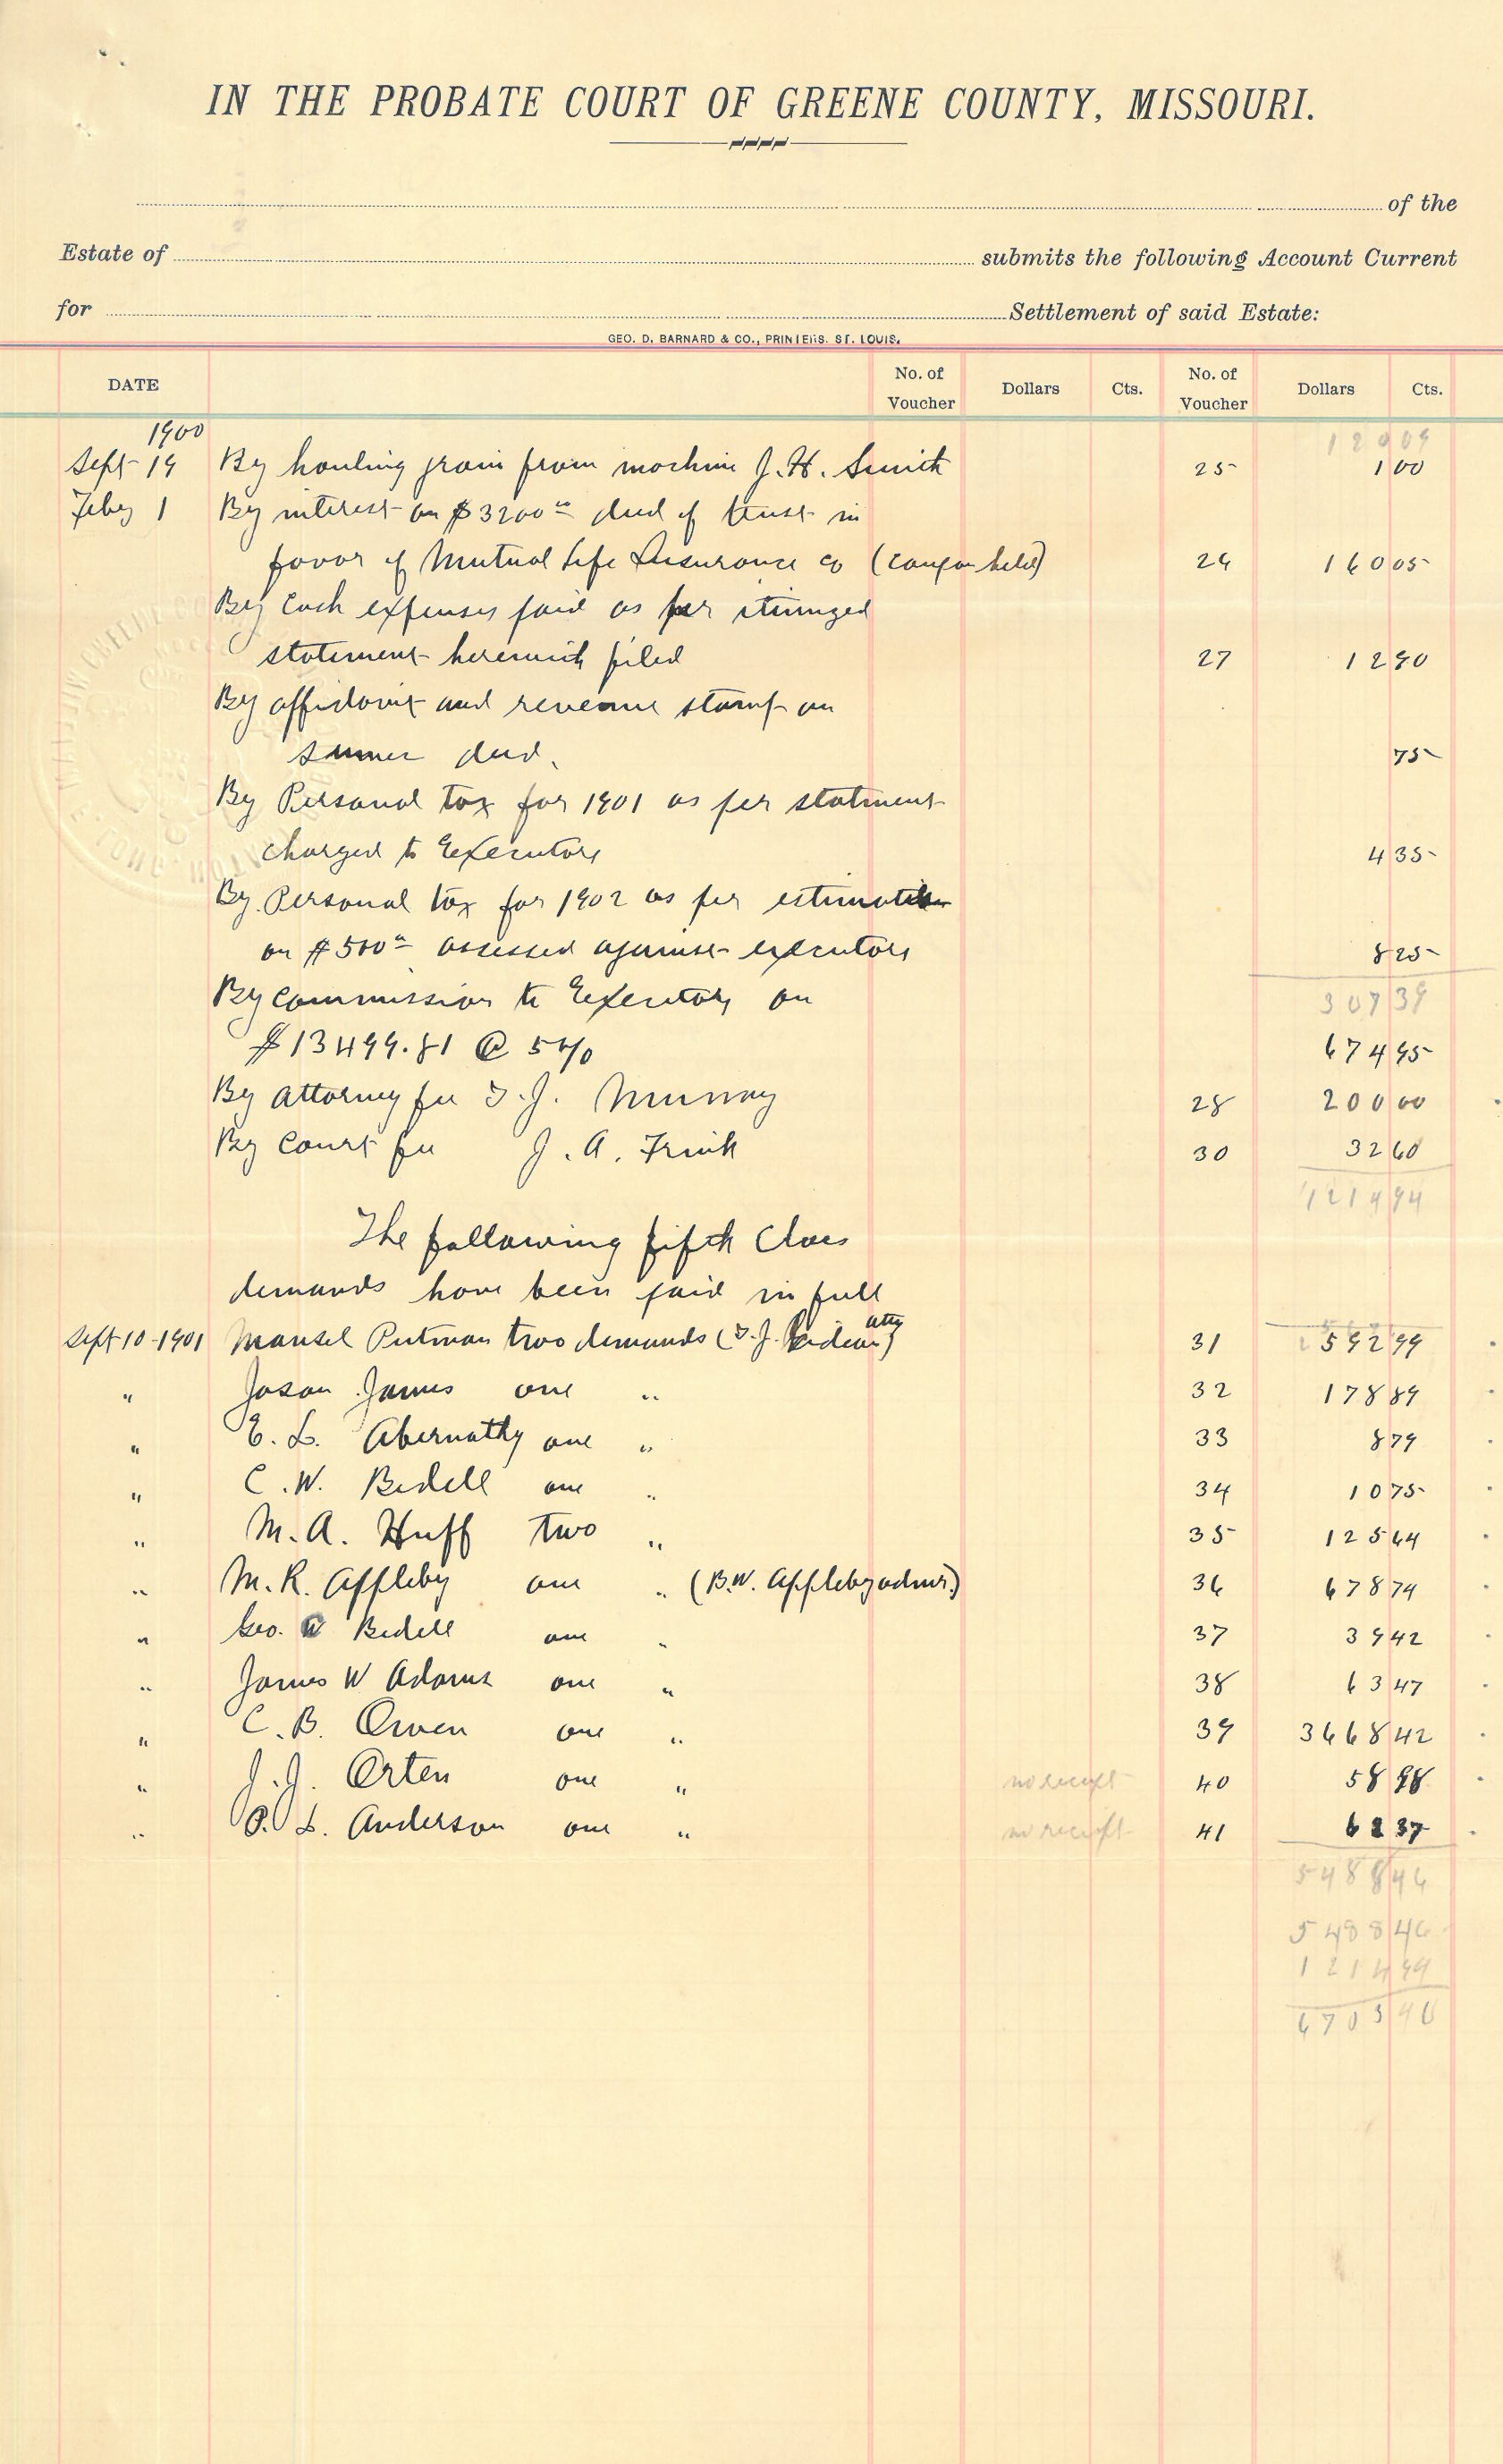 IN THE PROBATE COURT OF GREENE COUNTY, MISSOURI.
of the
Estate of submits the following Account Current
for Settlement of said Estate:
GEO. D. BARNARD & CO., PRINTERS. ST. LOUIS.
DATE No. of Voucher Dollars Cts. No. of Voucher Dollars Cts.
1900 120 09
Sept 19 By hauling grain from machine J. H. Smith 25 1 00
Feby 1 By interest on $3200 00 deed of trust in
favor of Mutual Life Insurance Co (coupon held) 26 160 05
By Cash expenses paid as per itemized
statement herewith filed 27 12 90
By affidavit and revenue stamp on
deed. 75
By Personal tax for 1901 as per statment
charged to Executors 4 35
By Personal tax for 1902 as per
on $500 00 assessed against executors 8 25
By commission to Executors on 307 39
$13499.81 @ 5% 674 95
By attorney fee T. J. Murray 28 200 00
By Court fee J. A. Frink 30 32 60
1214 94
The following fifth Class
demands have been paid in full
Sept 10-1901 Mansel Putman two demands (T. J. atty) 31 592 99
" Jason James one " 32 178 89
" E. L. Abernathy one " 33 8 79
" C. W. Bedell one " 34 10 75
" M. A. Huff two " 35 125 64
" M. R. Appleby one " (B.W. Appleby admr.) 36 678 74
" Geo. W Bedell one " 37 39 42
" James W Adams one " 38 63 47
" C. B. Owen one " 39 3668 42
" J. J. Orten one " no receipt 40 58 98
" P. L. Anderson one " no receipt 41 62 37
5488 46
5488 46
1214 94
6703 40